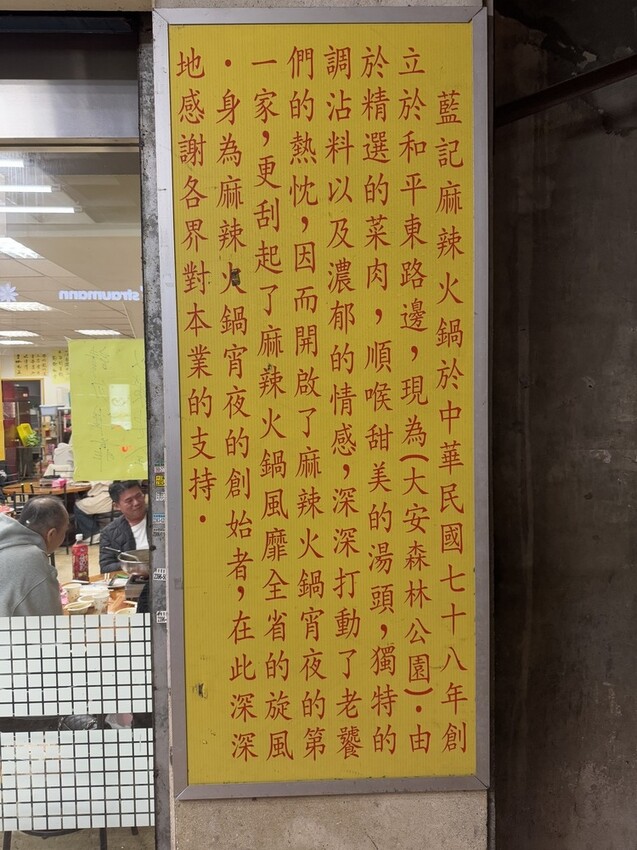 藍記麻辣火鍋於中華民國七十八年創
立於和平東路邊，現為(大安森林公園)．由
於精選的菜肉，順喉甜美的湯頭，獨特的
調沾料以及濃郁的情感，深深打動了老饕
們的熱忱，因而開啟了麻辣火鍋宵夜的第
一家，更刮起了麻辣火鍋風靡全省的旋風
．身為麻辣火鍋宵夜的創始者，在此深深
地感謝各界對本業的支持．
straumann